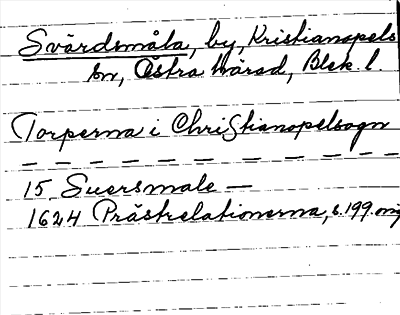 Svärdsmåla, by, Kristianopels
sn, Östra härad, Blek. l.
Torperna i Christianopelsogn
— — — — — — — — — — —
15. Suersmale —
1624 Prästrelationerna, s. 199. orig